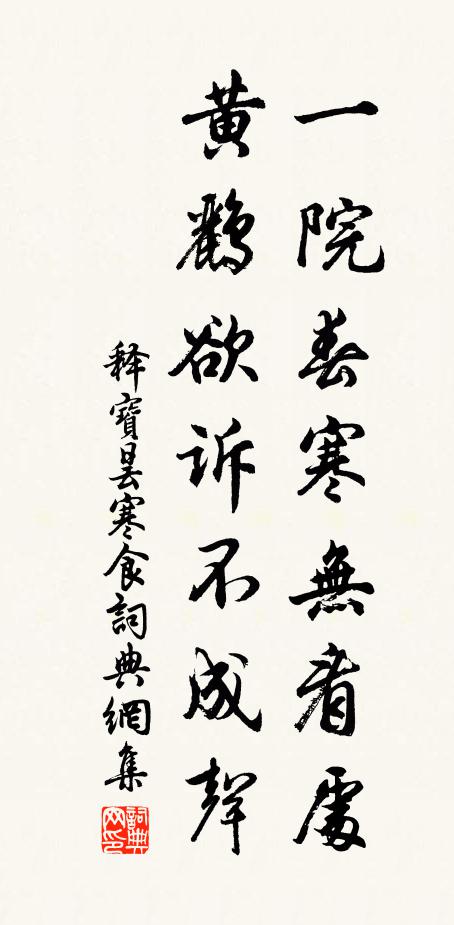 一院春寒無着處
黃鸝欲訴不成聲
释寶昙寒食詞典網集
詞典网印